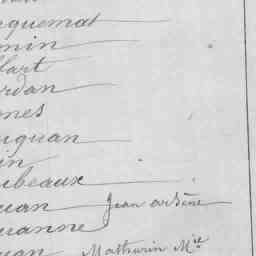 quemat
min
llart
rdan
nes
uguan
in
ibeaux
uan Jean arsène
uanne
uan Mathurin Mie